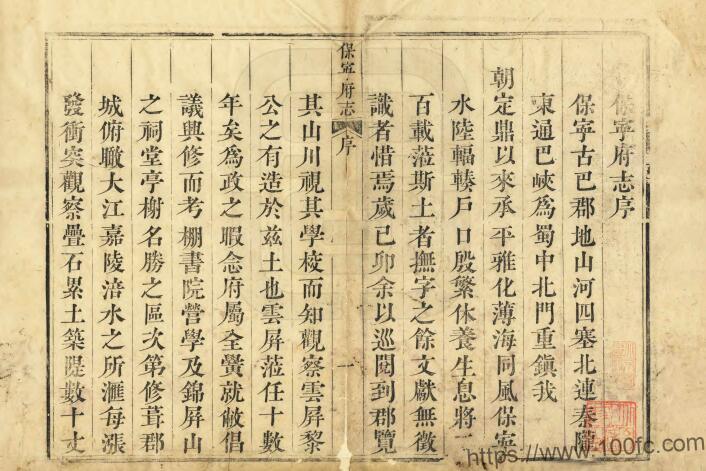 保寧府志序
保寧古巴郡地山河四塞北連秦隴
東通巴峽為蜀中北門重鎮我
朝定鼎以來承平雅化薄海同風保寧
水陸輻輳戶口殷繁休養生息將
百載蒞斯土者撫字之餘文獻無徵
識者惜焉歲己卯余以巡閱到郡覽
保寧府志 序 一
其山川視其學校而知觀察雲屏黎
公之有造於茲土也雲屏蒞任十數
年矣為政之暇念府屬全黌就敝倡
議興修而考棚書院營學及錦屏山
之祠堂亭榭名勝之區次第修葺郡
城俯瞰大江嘉陵涪水之所滙每漲
發衝突觀察疊石累土築隄數十丈
https://www.100fc.com